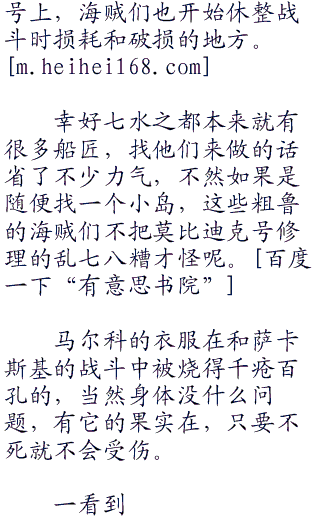 号上，海贼们也开始休整战
斗时损耗和破损的地方。
[m.heihei168.com]
幸好七水之都本来就有
很多船匠，找他们来做的话
省了不少力气，不然如果是
随便找一个小岛，这些粗鲁
的海贼们不把莫比迪克号修
理的乱七八糟才怪呢。[百度
一下“有意思书院”]
马尔科的衣服在和萨卡
斯基的战斗中被烧得千疮百
孔的，当然身体没什么问
题，有它的果实在，只要不
死就不会受伤。
一看到